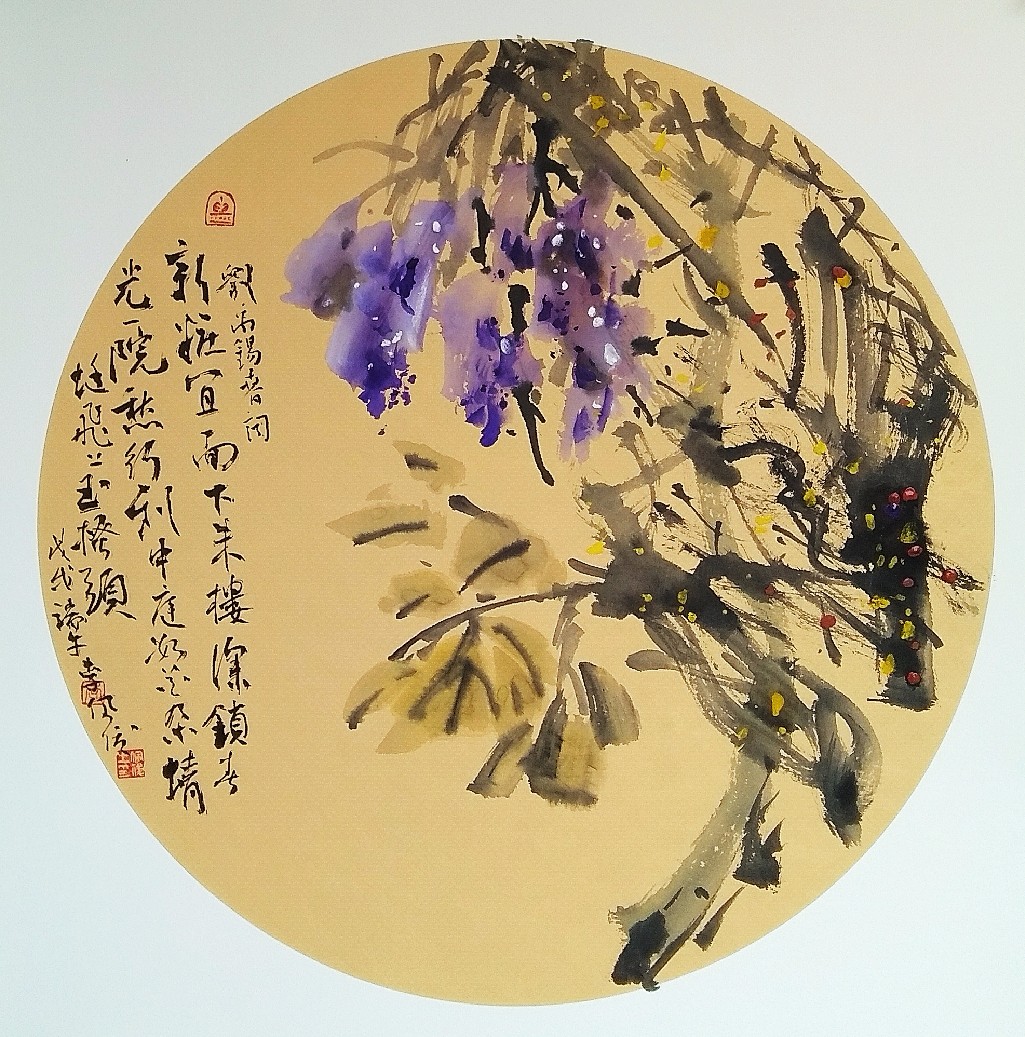 劉禹錫春詞
新粧宜面下朱樓深鎖春
光一院愁行到中庭數花朵蜻
蜓飛上玉搔頭
戊戌端午